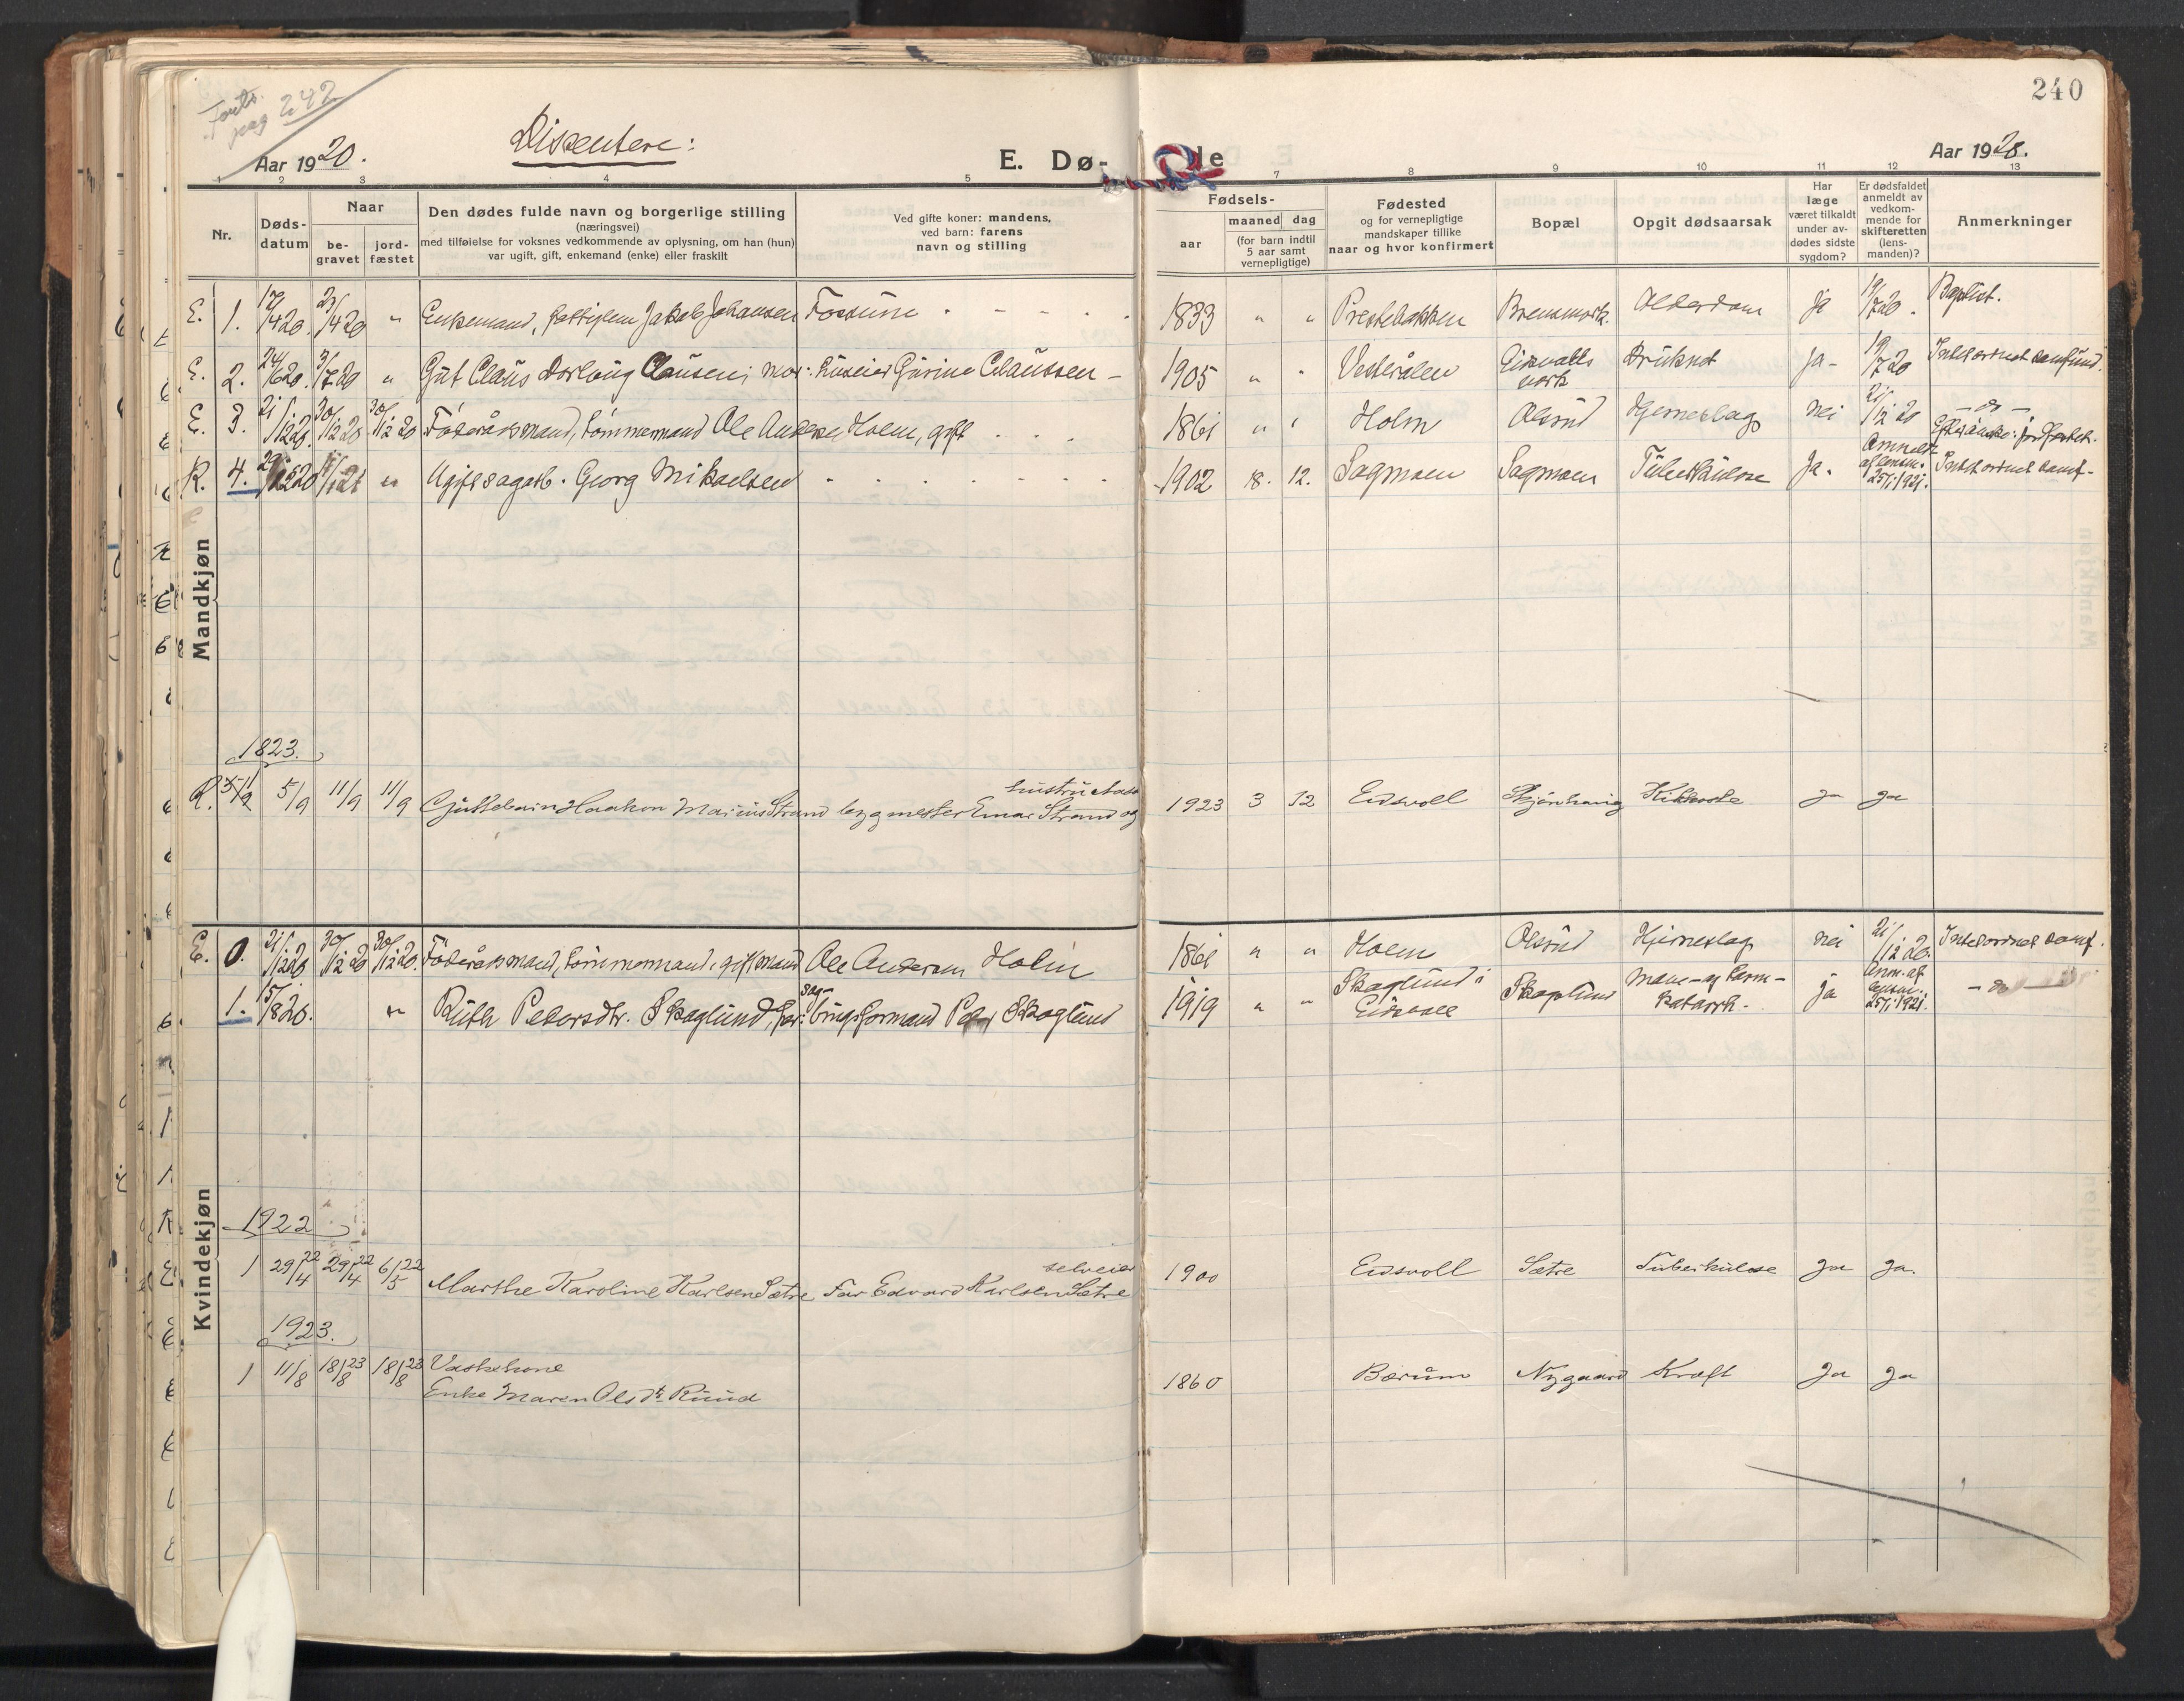 Forts.
pag 242
240
Aar 1920.
Dissentere:
E. Dø-
de
Aar 1920.
1 2 3 4 5 7 8 9 10 11 12 13
Nr.
Døds-
datum
Naar
be-
gravet
jord-
fæstet
Den dødes fulde navn og borgerlige stilling
(næringsvei)
med tilføielse for voksnes vedkommende av oplysning, om han (hun)
var ugift, gift, enkemand (enke) eller fraskilt
Ved gifte koner: mandens,
ved barn: farens
navn og stilling
Fødsels-
aar
maaned
dag
(for barn indtil
5 aar samt
vernepligtige)
Fødested
og for vernepligtige
mandskaper tillike
naar og hvor konfirmert
Bopæl
Opgit dødsaarsak
Har
læge
været tilkaldt
under av-
dødes sidste
sygdom?
Er dødsfaldet
anmeldt av
vedkom-
mende for
skifteretten
(lens-
manden)?
Anmerkninger
E. 1. 17/4 20. 23/4 20 " Enkemand, fattiglem Jakob Johansen Fossum 1833 " " Prestebakken Brensmork. Alderdom ja 19/7 20. Baptist.
E. 2. 24/6 20. 3/7 20 " Gut Claus Dorlong Clausen; mor: huseier Gurine Claussen - 1905 " " Vesterålen Eidsvolls verk Druknet ja- 19/7 20 Intet ordnet samfund.
E. 3. 21/12 20. 30/12 20 30/12 20 Føderåsmand, tømmermand Ole Andersen Holm, gift 1861 " " Holm Olsrud Hjerneslag nei 21/12 20 - do -
jordfæstet.
R. 4. 29/12 20 1/1 21 " Ugift sagarb. Georg Mikaelsen 1902 18. 12. Sagmoen Sagmoen Tuberkulose Ja. Anmeldt af lensm. 25/1 1921. Intet ordnet samf-
Mandkjøn
1823.
R. 5/9 11/9 11/9 Guttebarn Haakon Marius Strand bygmester Einar Strand og hustru 1923 3 12 Eidsvoll Kikhoste ja ja
E. 0. 21/12 20 30/12 20 30/12 20. Føderåsmand, tømmermand, gift mand Ole Andersen Holm 1861 " " Holm Olsrud Hjerneslag nei 21/12 20. Intet ordnet samf.
1. 15/8 20. " Ruth Petersdtr. Skoglund, far: sag-
tingsformand Peter Skoglund 1919 " " Skoglund i Eidsvoll Skoglund Mave- og tarm-
katarrh. ja Anm. af lensm. 25/1 1921. - do -
Kvindekjøn
1922
1 29/4 22 29/4 22 6/5 22 Marthe Karoline Karlsen Sætre Far Edvard Karlsen Sætre selveier 1900 Eidsvoll Sætre Tuberkulose Ja Ja.
1923.
1 11/8 18/8 23 18/8 23 Vaskekone
Enke Maren Olsdtr Ruud 1860 Bærum Nygaard Kræft Ja Ja